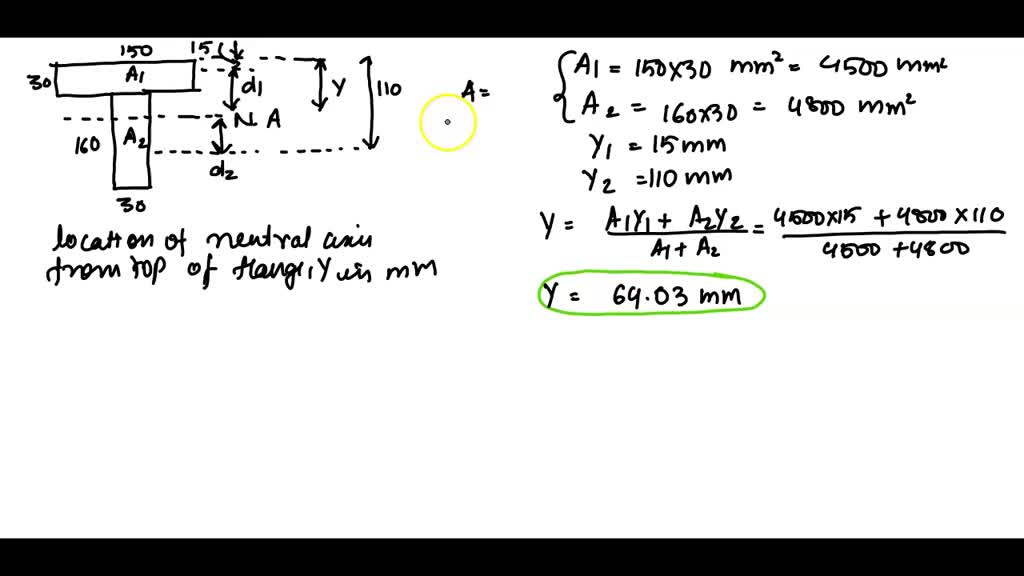 150 15
30 A1 d1 Y 110
N A
160 A2
d2
30
location of neutral axis
from top of flange, Y in mm
A =
A1 = 150x30 mm² = 4500 mm²
A2 = 160x30 = 4800 mm²
Y1 = 15 mm
Y2 = 110 mm
Y = A1Y1 + A2Y2 / A1 + A2 = 4500x15 + 4800x110 / 4500 + 4800
Y = 64.03 mm